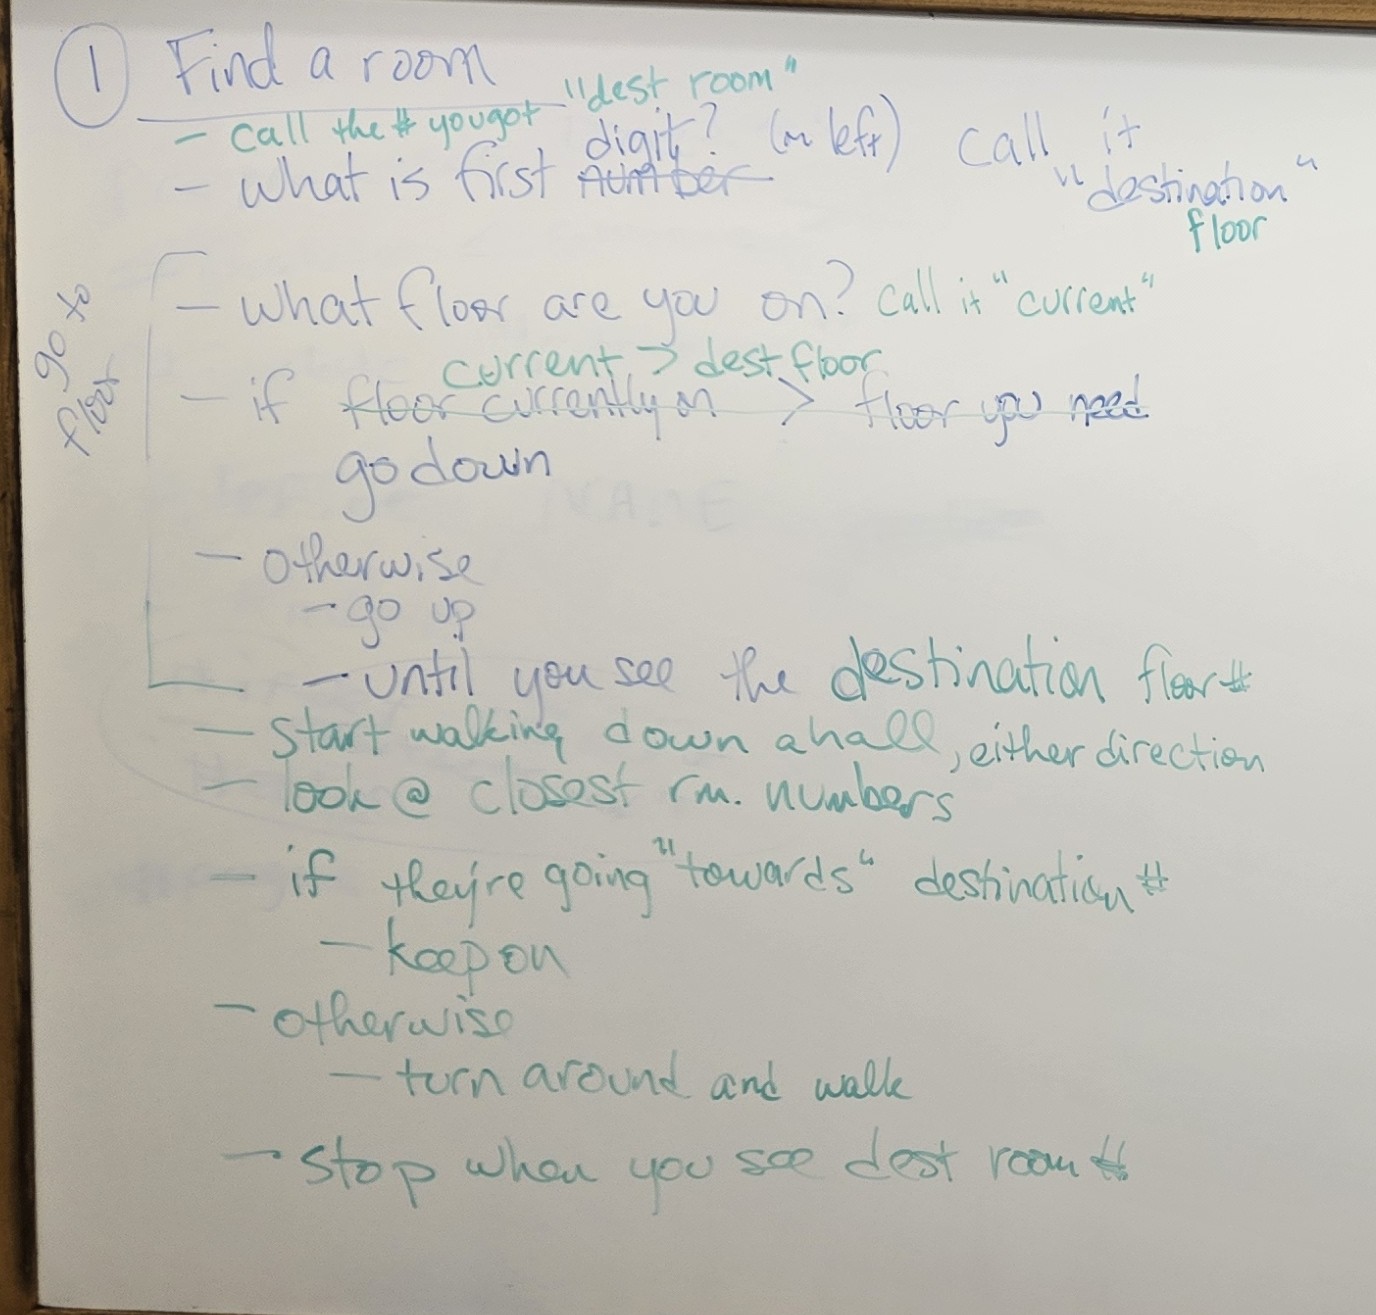 ① Find a room
- call the # you got "dest room"
- what is first number digit? (on left) call it "destination"
floor
go to floor
- what floor are you on? call it "current"
current > dest floor
- if floor currently on > floor you need
go down
- otherwise
- go up
- until you see the destination floor #
- start walking down a hall, either direction
- look @ closest rm. numbers
- if they're going "towards" destination #
- keep on
- otherwise
- turn around and walk
- stop when you see dest room #